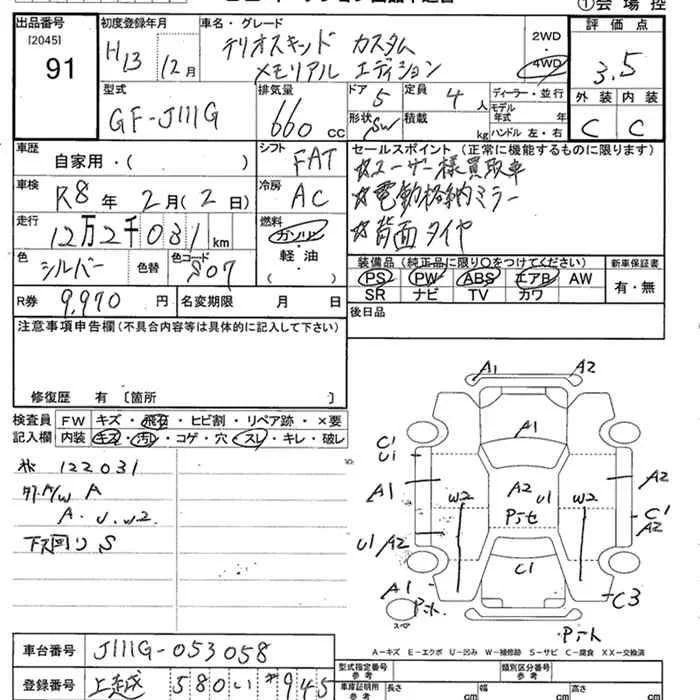 ①会場控
出品番号 [2045] 91
初度登録年月 H13 12月
車名・グレード テリオスキッド カスタム
メモリアル エディション
2WD・4WD
評価点 3.5
型式 GF-J111G
排気量 660 cc
ドア 5 定員 4人
形状 SW 積載 kg
ディーラー・並行
モデル年式 年
ハンドル 左・右
外装 C 内装 C
車歴 自家用・( )
シフト FAT
車検 R8年 2月(2日)
冷房 AC
走行 12万2千031 km
燃料 ガソリン・軽油・( )
色 シルバー 色替 色コード S07
R券 9,970円 名変期限 月 日
セールスポイント(正常に機能するものに限ります)
☆ユーザー様買取車
☆電動格納ミラー
☆背面タイヤ
装備品(純正品に限り○をつけてください) 新車保証書
PS PW ABS エアB AW 有・無
SR ナビ TV カワ
後日品
注意事項申告欄(不具合内容等は具体的に記入して下さい)
修復歴 有 〔箇所 〕
検査員記入欄
FW キズ・飛石・ヒビ割・リペア跡・×要
内装 キズ・汚レ・コゲ・穴・スレ・キレ・破レ
122031
A
A.U.W2
下廻り S
A1 A2
A1
C1
U1
A1
W2
A2
U1
W2
A2
C1
A2
U1 A2
C1
A1
C3
スペア
A−キズ E−エクボ U−凹み W−補修跡 S−サビ C−腐食 XX−交換済
車台番号 J111G-053058
登録番号 580 い 945
型式指定番号 参考
類別区分番号 参考
車庫証明用 参考 長さ cm 幅 cm 高さ cm